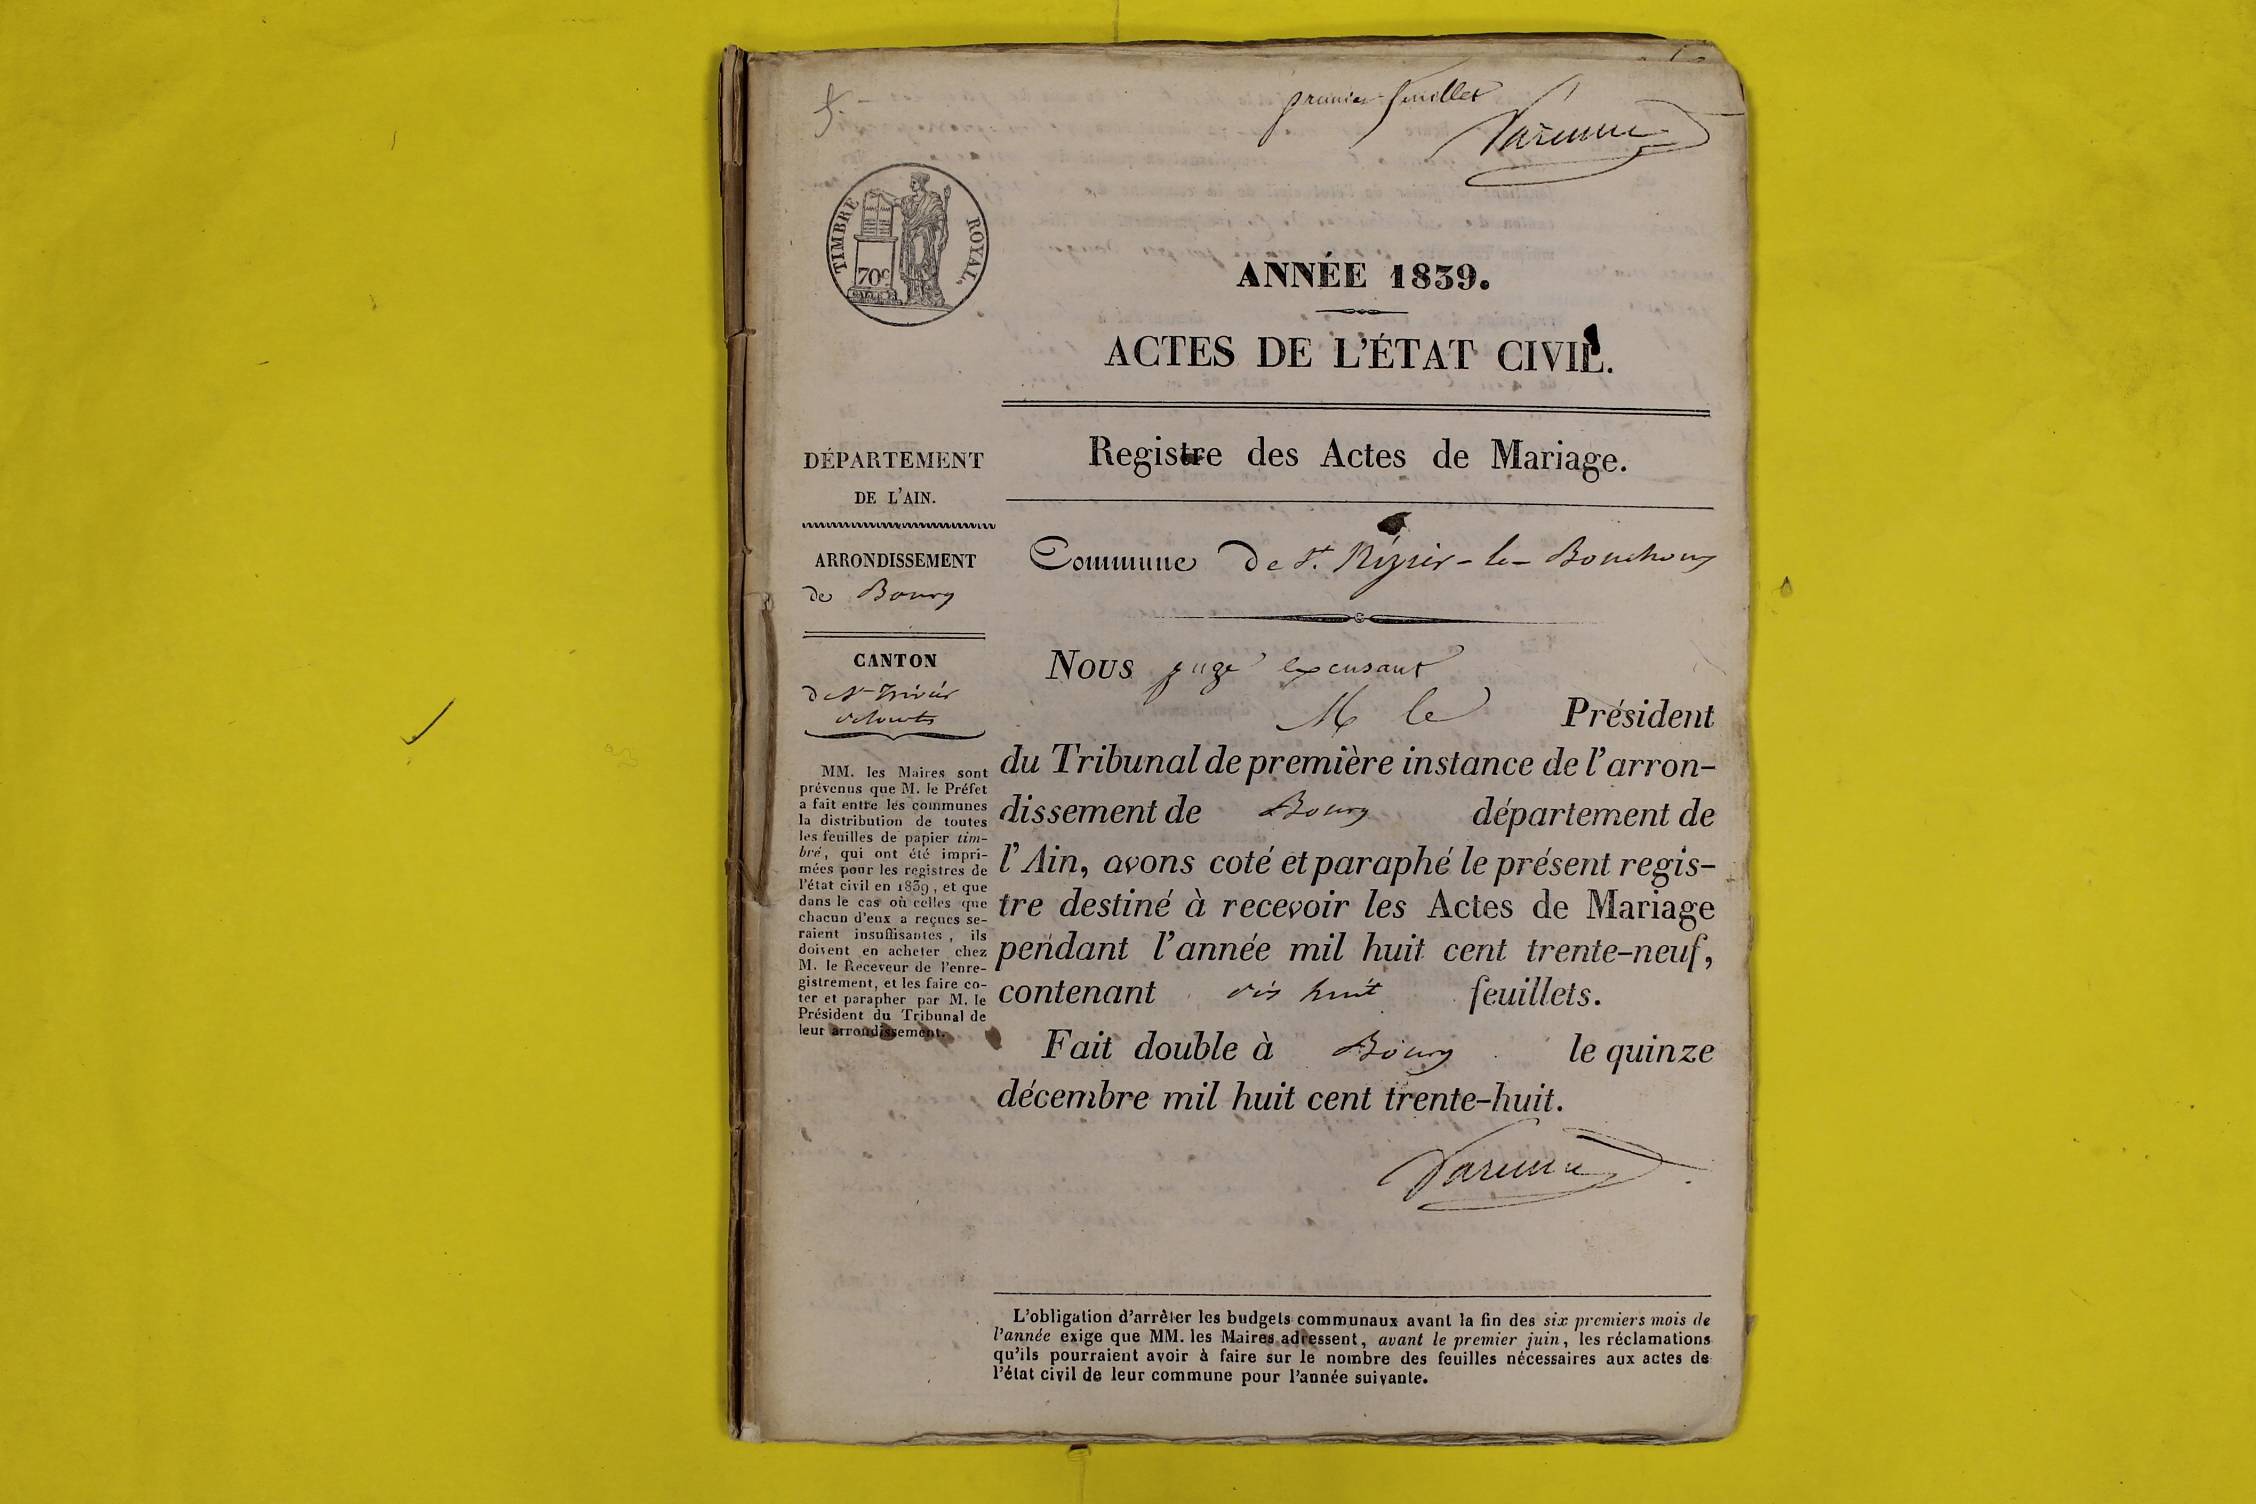 5.
premier feuillet
Varenne
TIMBRE ROYAL.
70c
ANNÉE 1839.
ACTES DE L'ÉTAT CIVIL.
DÉPARTEMENT
DE L'AIN.
ARRONDISSEMENT
de Bourg
CANTON
de St Trivier
de Courtes
MM. les Maires sont
prévenus que M. le Préfet
a fait entre les communes
la distribution de toutes
les feuilles de papier tim-
bré, qui ont été impri-
mées pour les registres de
l'état civil en 1839, et que
dans le cas où celles que
chacun d'eux a reçues se-
raient insuffisantes, ils
doivent en acheter chez
M. le Receveur de l'enre-
gistrement, et les faire co-
ter et parapher par M. le
Président du Tribunal de
leur arrondissement.
Registre des Actes de Mariage.
Commune de St. Nizier-le-Bouchoux
Nous juge excusant
M le Président
du Tribunal de première instance de l'arron-
dissement de Bourg département de
l'Ain, avons coté et paraphé le présent regis-
tre destiné à recevoir les Actes de Mariage
pendant l'année mil huit cent trente-neuf,
contenant dix huit feuillets.
Fait double à Bourg le quinze
décembre mil huit cent trente-huit.
Varenne
L'obligation d'arrêter les budgets communaux avant la fin des six premiers mois de
l'année exige que MM. les Maires adressent, avant le premier juin, les réclamations
qu'ils pourraient avoir à faire sur le nombre des feuilles nécessaires aux actes de
l'état civil de leur commune pour l'année suivante.